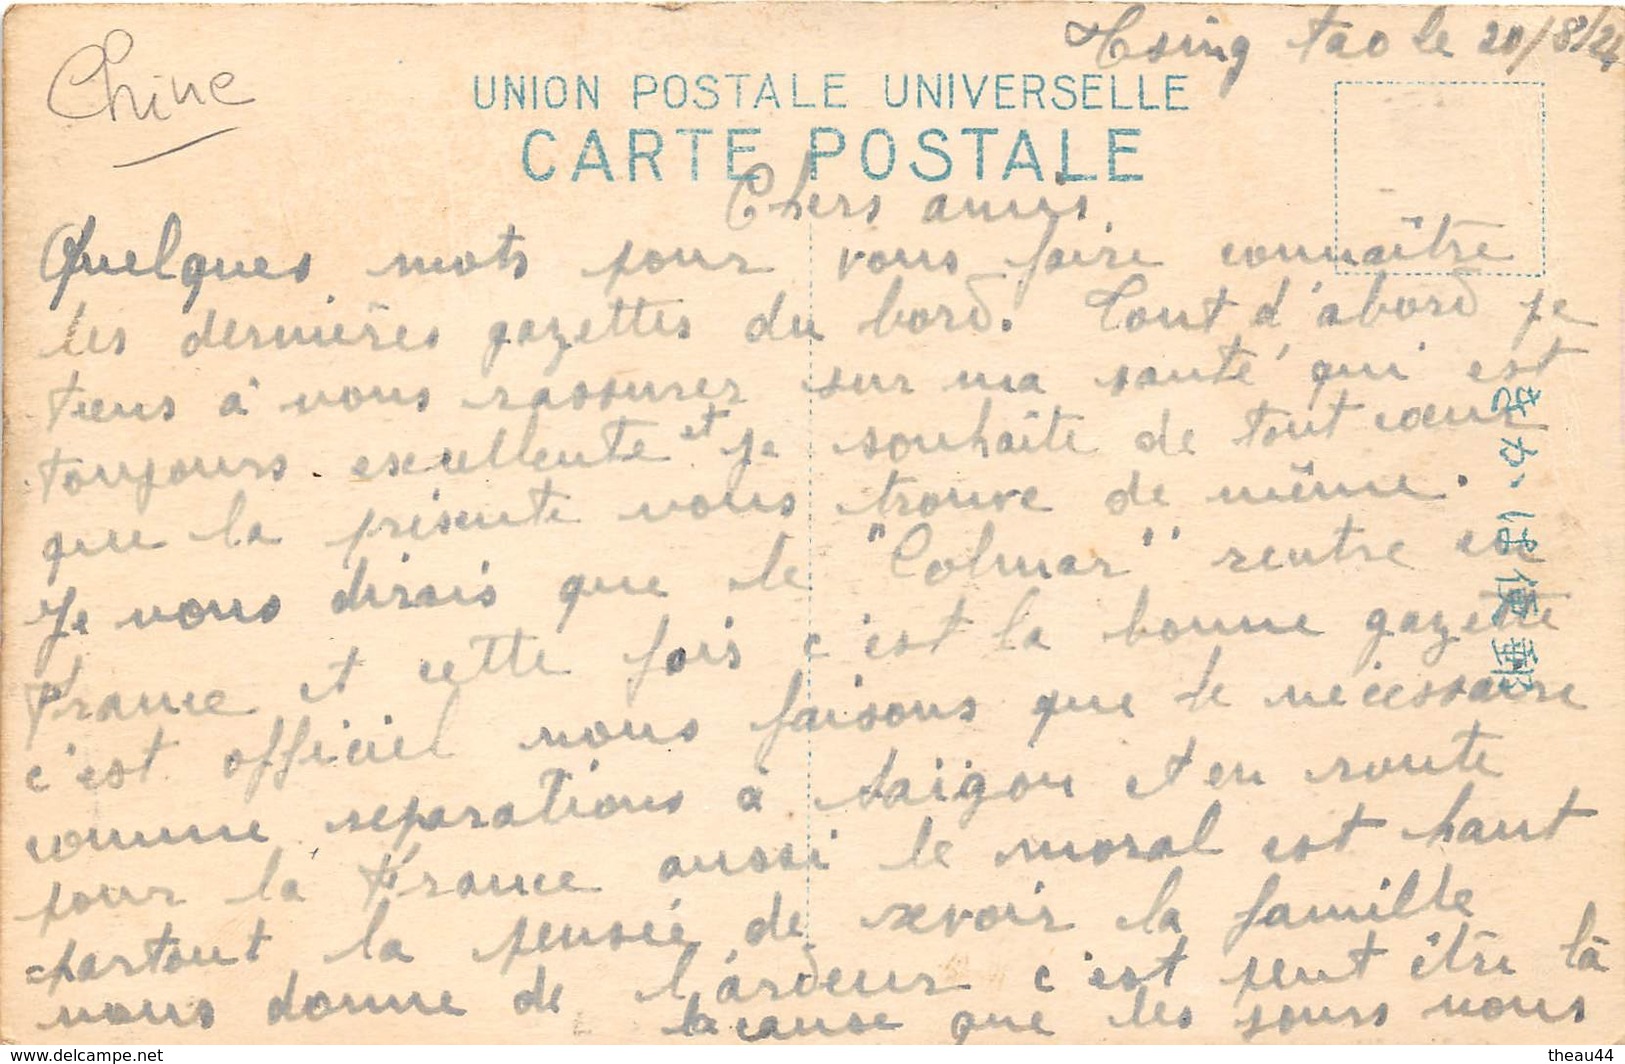 Chine
Tsing tao le 20/8/24
UNION POSTALE UNIVERSELLE
CARTE POSTALE
Chers amis.
Quelques mots pour vous faire connaître
les dernières gazettes du bord. Tout d'abord je
tiens à vous rassurer sur ma santé qui est
toujours excellente et je souhaite de tout cœur
que la présente vous trouve de même.
Je vous dirais que le "Colmar" rentre en
France et cette fois c'est la bonne gazette
c'est officiel nous faisons que le nécessaire
comme réparations à Saïgon et en route
pour la France aussi le moral est haut
partout la pensée de revoir la famille
nous donne de l'ardeur c'est peut être là
la cause que les jours nous
きかは便郵
theau44